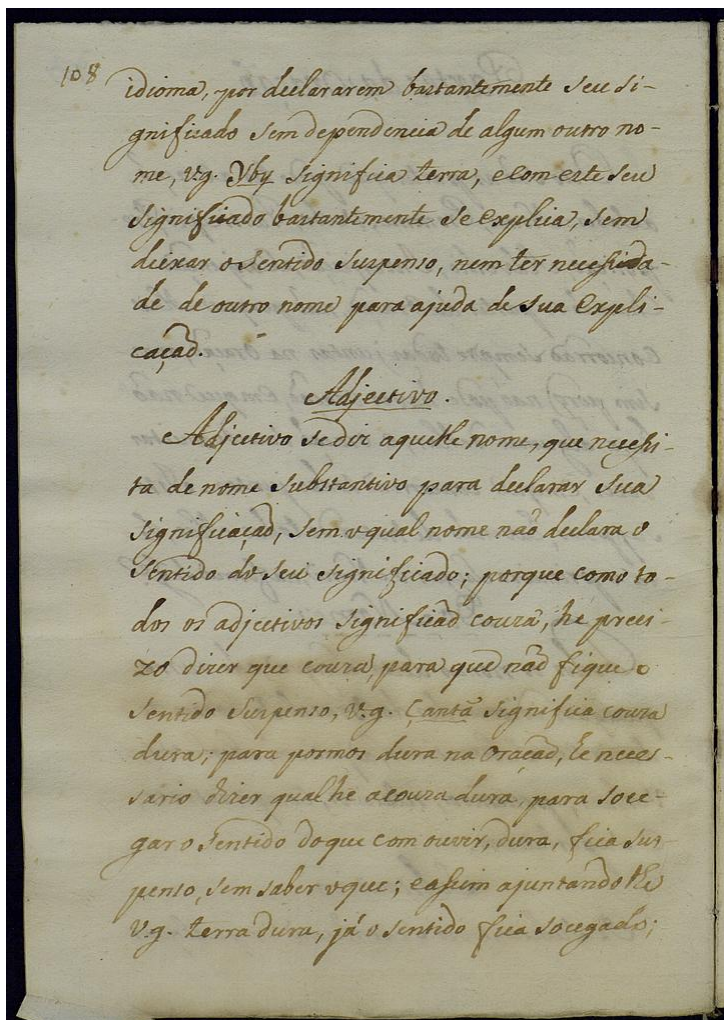 108
idioma, por declararem bastantemente seu si-
gnificado sem dependencia de algum outro no-
me, v.g. Yby significa terra, e com este seu
significado bastantemente se explica, sem
deixar o sentido suspenso, nem ter necessida-
de de outro nome para ajuda de sua expli-
caçaõ.
Adjectivo.
Adjectivo se diz aquelle nome, que necessi-
ta de nome substantivo para declarar sua
significaçaõ, sem o qual nome não declara o
sentido do seu significado; porque como to-
dos os adjectivos significaõ couza, he preci-
zo dizer que couza, para que naõ fique o
sentido suspenso, v.g. Çantã significa couza
dura; para pormos dura na Oraçaõ, he neces-
sario dizer qual he a couza dura, para soce-
gar o sentido do que com ouvir, dura, fica sus-
penso, sem saber o que; e assim ajuntando lhe
v.g. terra dura, já o sentido fica socegado;